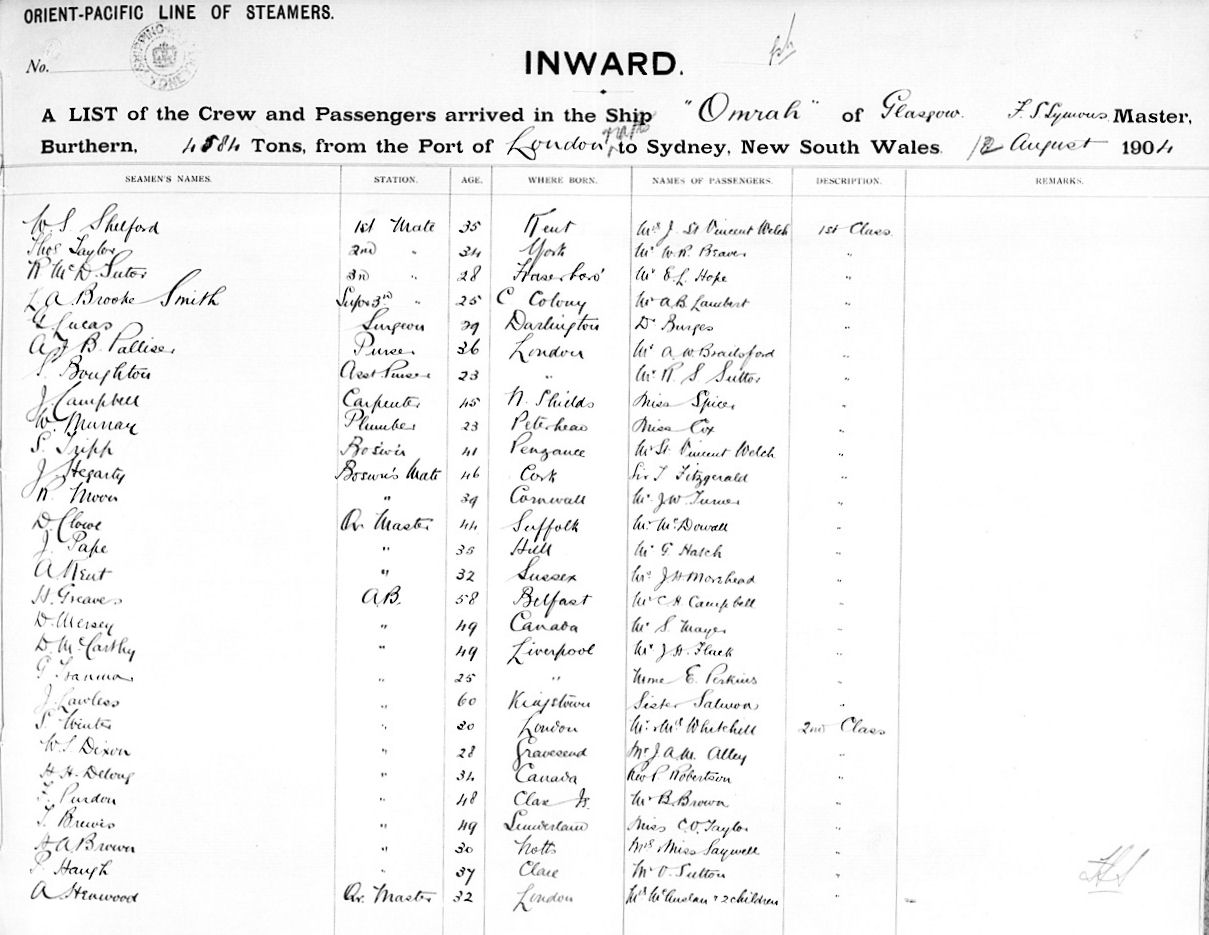 ORIENT-PACIFIC LINE OF STEAMERS.
No.
INWARD.
A LIST of the Crew and Passengers arrived in the Ship "Omrah" of Glasgow. F. S Symons Master,
Burthern, 4584 Tons, from the Port of London to Sydney, New South Wales 12 August 1904
SEAMEN'S NAMES. STATION. AGE. WHERE BORN. NAMES OF PASSENGERS. DESCRIPTION. REMARKS.
W S Shelford 1st Mate 35 Kent Mrs J. St Vincent Welch 1st Class
Thos Taylor 2nd " 34 York Mr W. R. Beaver "
R McD. Sutor 3rd " 28 Fraserboro' Mr E L Hope "
L A Brooke Smith Super 3rd " 25 C Colony Mr A B Lambert "
G Lucas Surgeon 29 Darlington Dr Burges "
A J B. Palliser Purser 36 London Mr A W Brailsford "
S. Boughton Asst Purser 23 " Mr R S Sutton "
J Campbell Carpenter 45 N. Shields Miss Spicer "
W Murray Plumber 23 Peterhead Miss Cox "
S. Tripp Bos'n 41 Penzance Mr St Vincent Welch "
J Hegarty Boswn's Mate 46 Cork Sir T Fitzgerald "
R Moon " 39 Cornwall Mr J W Turner "
D. Clowe Qr Master 44 Suffolk Mr McDowall "
J. Pape " 35 Hull Mr G Hatch "
A Kent " 32 Sussex J H Morehead "
H. Greaves AB. 58 Belfast Mr C H Campbell "
D. Mersey " 49 Canada Mr S. Mayer "
D. McCarthy " 49 Liverpool Mr J H. Fluck "
G " 25 " Mme E. Perkins "
J Lawless " 60 Kingstown Sister Salmon "
S Winter " 30 London Mr & Mrs Whitchell 2nd Class
W. S Dixon " 28 Gravesend Mr J. A. M. Alley "
H H. Delong " 34 Canada Rev P. Robertson "
Purdon " 48 Clare Is. Mr B. Brown "
T Brewis " 49 Sunderland Miss C. O. Taylor "
H A Brown " 30 Notts Mrs & Miss Saywell "
P. Haugh " 37 Clare Mr O. Sutton "
A Henwood Qr. Master 32 London Mrs McAuslan & 2 children "